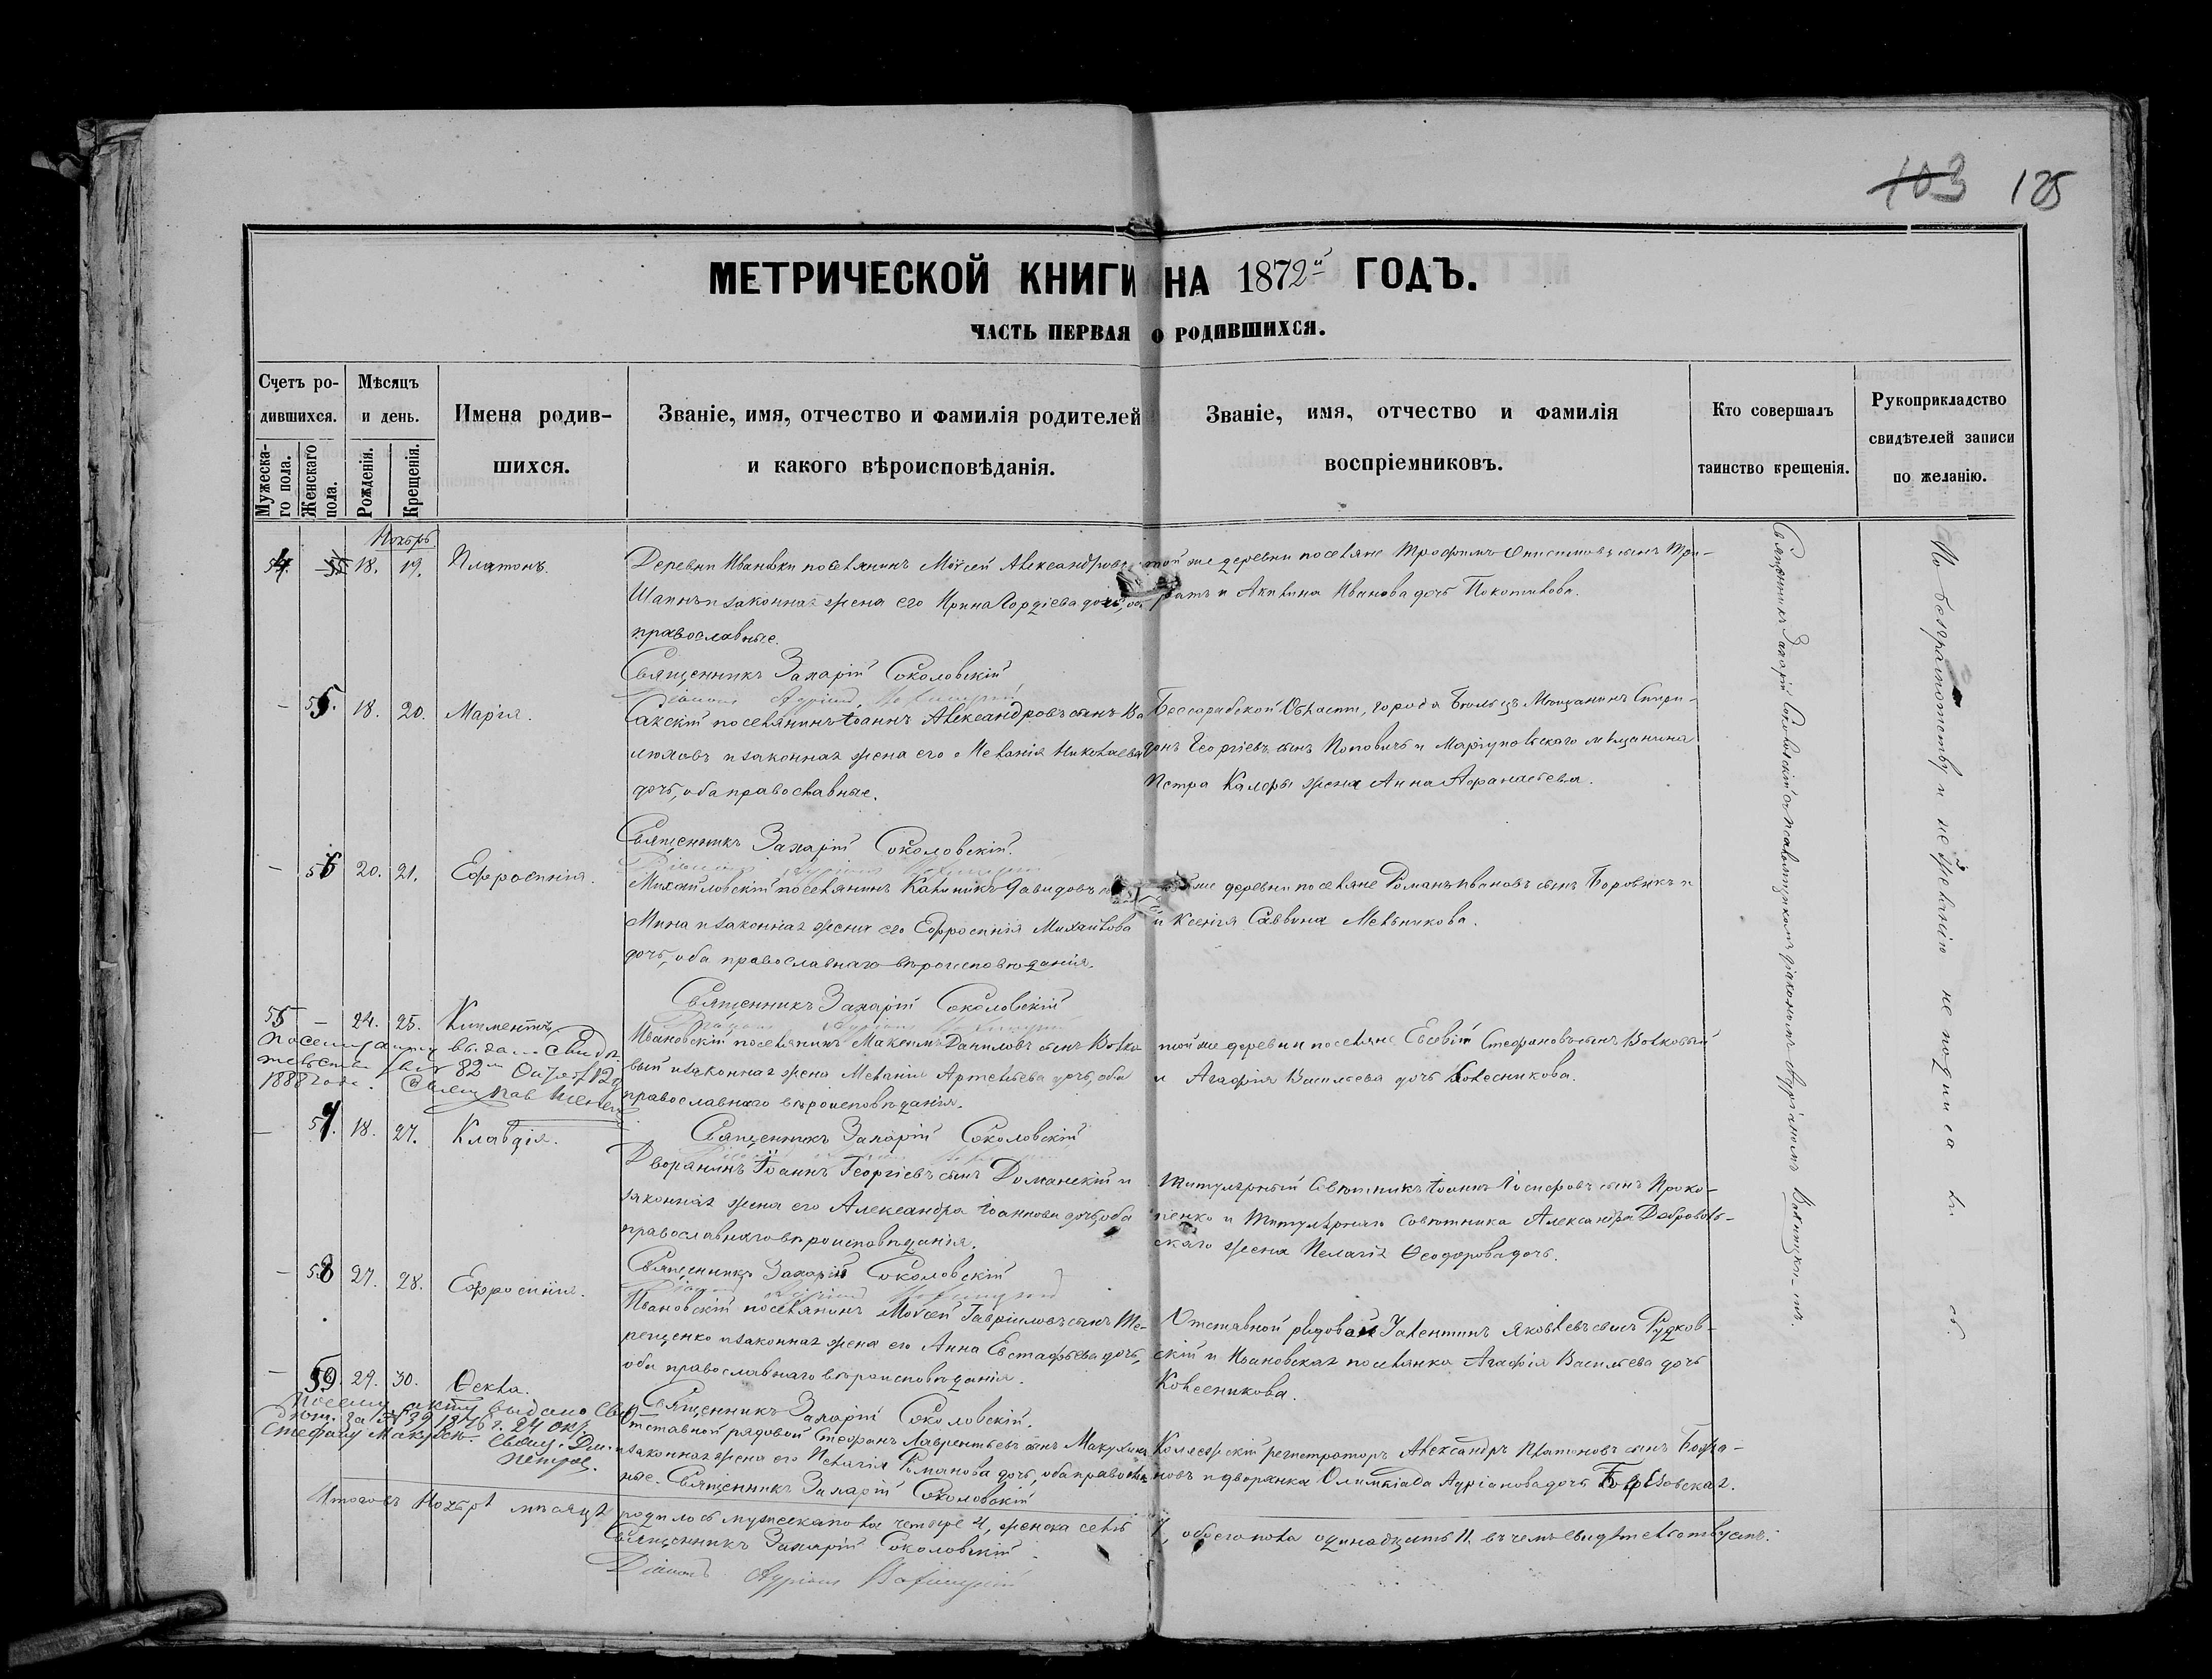 103 125
МЕТРИЧЕСКОЙ КНИГИ НА 1872й ГОДЪ.
ЧАСТЬ ПЕРВАЯ О РОДИВШИХСЯ.
Счетъ родившихся.
Мужескаго пола.
Женскаго пола.
Мѣсяцъ и день.
Рожденія.
Крещенія.
Имена родившихся.
Званіе, имя, отчество и фамилія родителей
и какого вѣроисповѣданія.
Званіе, имя, отчество и фамилія
воспріемниковъ.
Кто совершалъ
таинство крещенія.
Рукоприкладство
свидѣтелей записи
по желанію.
Ноябрь
54. 18. 19. Платонъ.
Деревни Ивановки поселянинъ Моѵсей Александровъ
и законная жена его Ирина Гордіева дочь, оба
православные.
Священникъ Захарій Соколовскій
той же деревни поселяне Трофимъ Онисимовъ сынъ
и Акилина Иванова дочь
– 55. 18. 20. Марія.
Сакскій поселянинъ Іоаннъ Александровъ сынъ
и законная жена его Меланія Николаева
дочь, оба православные.
Священникъ Захарій Соколовскій.
Бессарабской Области, города Бѣльцъ Мѣщанинъ Спири-
донъ Георгіевъ сынъ Поповичъ и Маріупольскаго мѣщанина
Петра жена Анна Афанасьева.
– 56 20. 21. Ефросинія.
Михайловскій поселянинъ Калиникъ Давидовъ
Мина и законная жена его Ефросинія Михайлова
дочь, оба православнаго вѣроисповѣданія.
Священникъ Захарій Соколовскій
той же деревни поселяне Романъ Ивановъ сынъ Боровикъ и
Ксенія Саввина Мельникова.
55 – 24. 25. Климентъ
По сему акту выдано свидѣ-
тельство 82 12
1888 года. Свящ. Пав.
Ивановскій поселянинъ Максимъ Даниловъ сынъ Волко-
вый и законная жена Меланія Артемьева дочь, оба
православнаго вѣроисповѣданія.
Священникъ Захарій Соколовскій
той же деревни поселяне Евсевій Стефановъ сынъ Волковый
и Агафія Васильева дочь Колесникова.
– 57. 18. 27. Клавдія.
Дворянинъ Іоаннъ Георгіевъ сынъ Доманскій и
законная жена его Александра Іоаннова дочь, оба
православнаго вѣроисповѣданія.
Священникъ Захарій Соколовскій
Титулярный Совѣтникъ Іоаннъ Іосифовъ сынъ Проко-
пенко и Титулярнаго Совѣтника Александра Добровольскаго
жена Пелагія Ѳеодорова дочь.
– 58 27. 28. Ефросинія.
Ивановскій поселянинъ Моѵсей Гавріиловъ сынъ Те-
рещенко и законная жена его Анна Евстафьева дочь,
оба православнаго вѣроисповѣданія.
Священникъ Захарій Соколовскій.
Отставной рядовой Яковлевъ сынъ Рудков-
скій и Ивановская поселянка Агафія Васильева дочь
Колесникова.
– 59 29. 30. Ѳекла.
По сему акту выдано свид.
за № 39 24
Стефану Свящ.
Петровъ.
Отставной рядовой Стефанъ Лаврентьевъ сынъ Макухинъ
и законная жена его Пелагія Романова дочь, оба православ-
ные. Священникъ Захарій Соколовскій
Коллежскій регистраторъ Александръ Платоновъ сынъ
и дворянка Олимпіада Адріанова дочь
Итого въ Ноябрѣ мѣсяцѣ родилось мужеска пола четыре 4, женска семь 7, обоего пола одинадцать 11. въ чемъ свидѣтельствуемъ:
Священникъ Захарій Соколовскій
Діаконъ Адріанъ
Священникъ Захарій Соколовскій съ псаломщикомъ діакономъ Адріаномъ
По безграмотству и не желанію не подписались.